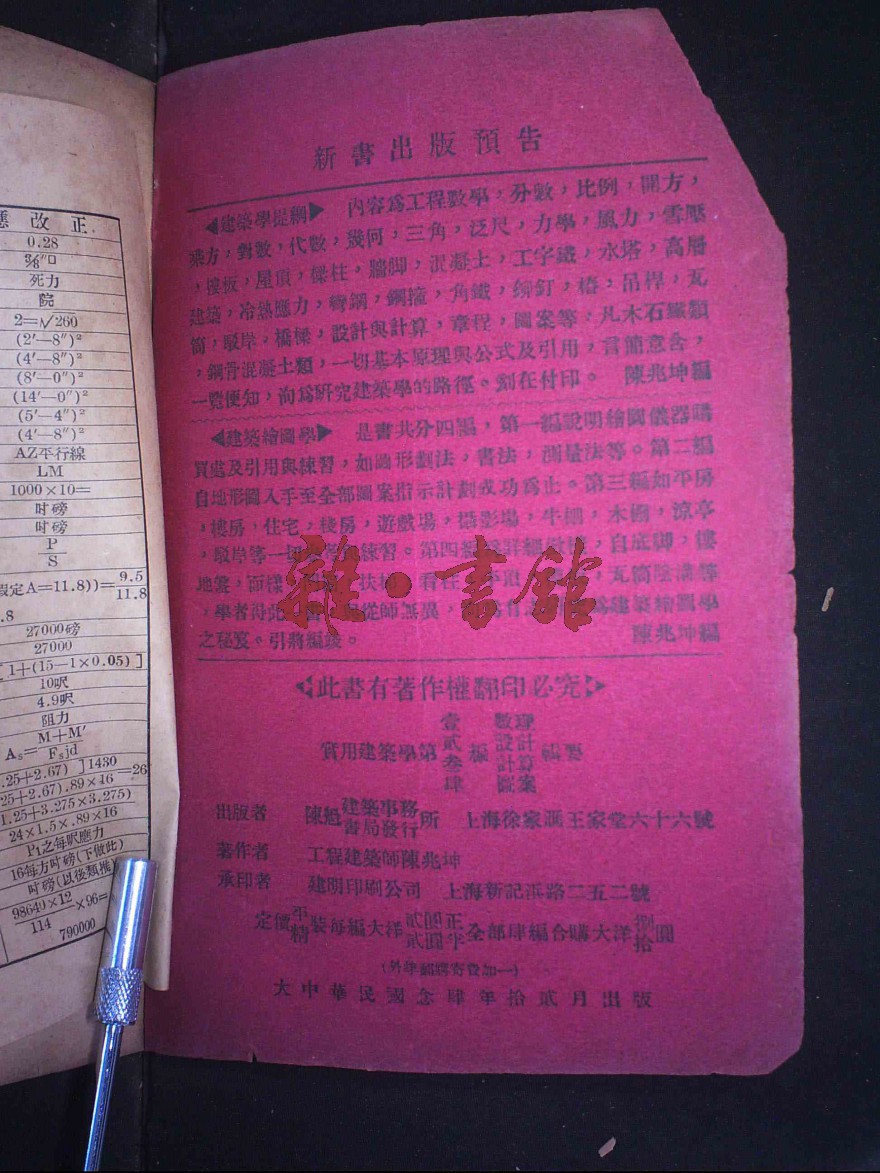 應改正
0.28
⅜"□
死力
院
2=√260
(2'—8")²
(4'—8")²
(8'—0")²
(14'—0")²
(5'—4")²
(4'—8")²
AZ平行線
LM
1000×10=
吋磅
吋磅
P
S
假定A=11.8))=9.5
11.8
.8
27000磅
27000
[1+(15—1×0.05)]
10呎
4.9呎
阻力
As=M+M'
Fsjd
.25+2.67)]1430
.25+2.67).89×16=26
1.25+3.275×3.275)
24×1.5×.89×16
P₁之每呎應力
16每方吋磅(下做此)
吋磅(以後類推)
98640×12×96=
114
790000
新書出版預告
◀建築學提綱▶ 內容爲工程數學,分數,比例,開方,
乘方,對數,代數,幾何,三角,泛尺,力學,風力,雪壓
,樓板,屋頂,樑柱,牆脚,混凝土,工字鐵,水塔,高層
建築,冷熱應力,彎鋼,鋼撞,角鐵,鉚釘,樁,吊桿,瓦
筒,駁岸,橋樑,設計與計算,章程,圖案等,凡木石鐵類
,鋼骨混凝土類,一切基本原理與公式及引用,言簡意含,
一覽便知,洵爲研究建築學的路徑。刻在付印。 陳兆坤編
◀建築繪圖學▶ 是書共分四編,第一編說明繪圖儀器購
買處及引用與練習,如圖形劃法,書法,測量法等。第二編
自地形圖入手至全部圖案指示計劃成功爲止。第三編如平房
,樓房,住宅,棧房,遊戲場,攝影場,牛棚,木棚,涼亭
,駁岸等一切 練習。第四編 詳細 ,自底脚,樓
地 ,面樣 扶梯 ,瓦筒陰溝等
,學者得此 從師無異, 爲建築繪圖學
之秘笈。引將編竣。 陳兆坤編
雜·書館
◁此書有著作權翻印必究▷
實用建築學第壹貳叁肆編 數理 設計 計算 圖案 輯要
出版者 陳 建築事務書局發行所 上海徐家滙王家堂六十六號
著作者 工程建築師陳兆坤
承印者 建明印刷公司 上海新記浜路二五二號
定價平精裝每編大洋貳圓正貳圓半全部肆編合購大洋捌拾圓
(外埠郵購寄費加一)
大中華民國念肆年拾貳月出版